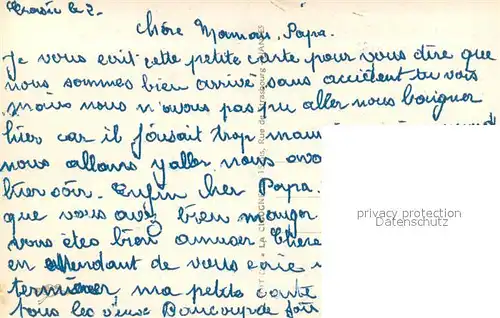 Croisic le 2.
Chère Maman, Papa.
Je vous ecrit cette petite carte pour vous dire que
nous sommes bien arrivé sans accident tu vois
mais nous n'avons pas pu aller nous baigner
hier car il faisait trop mau
nous allons y aller nous avo
hier soir. Enfin cher Papa.
que vous avez bien manger
vous êtes bien amuser. Chere
en attendant de vous
terminer ma petite carte
tous les deux Beaucoup de
Rue de Strasbourg NANTES
privacy protection
Datenschutz